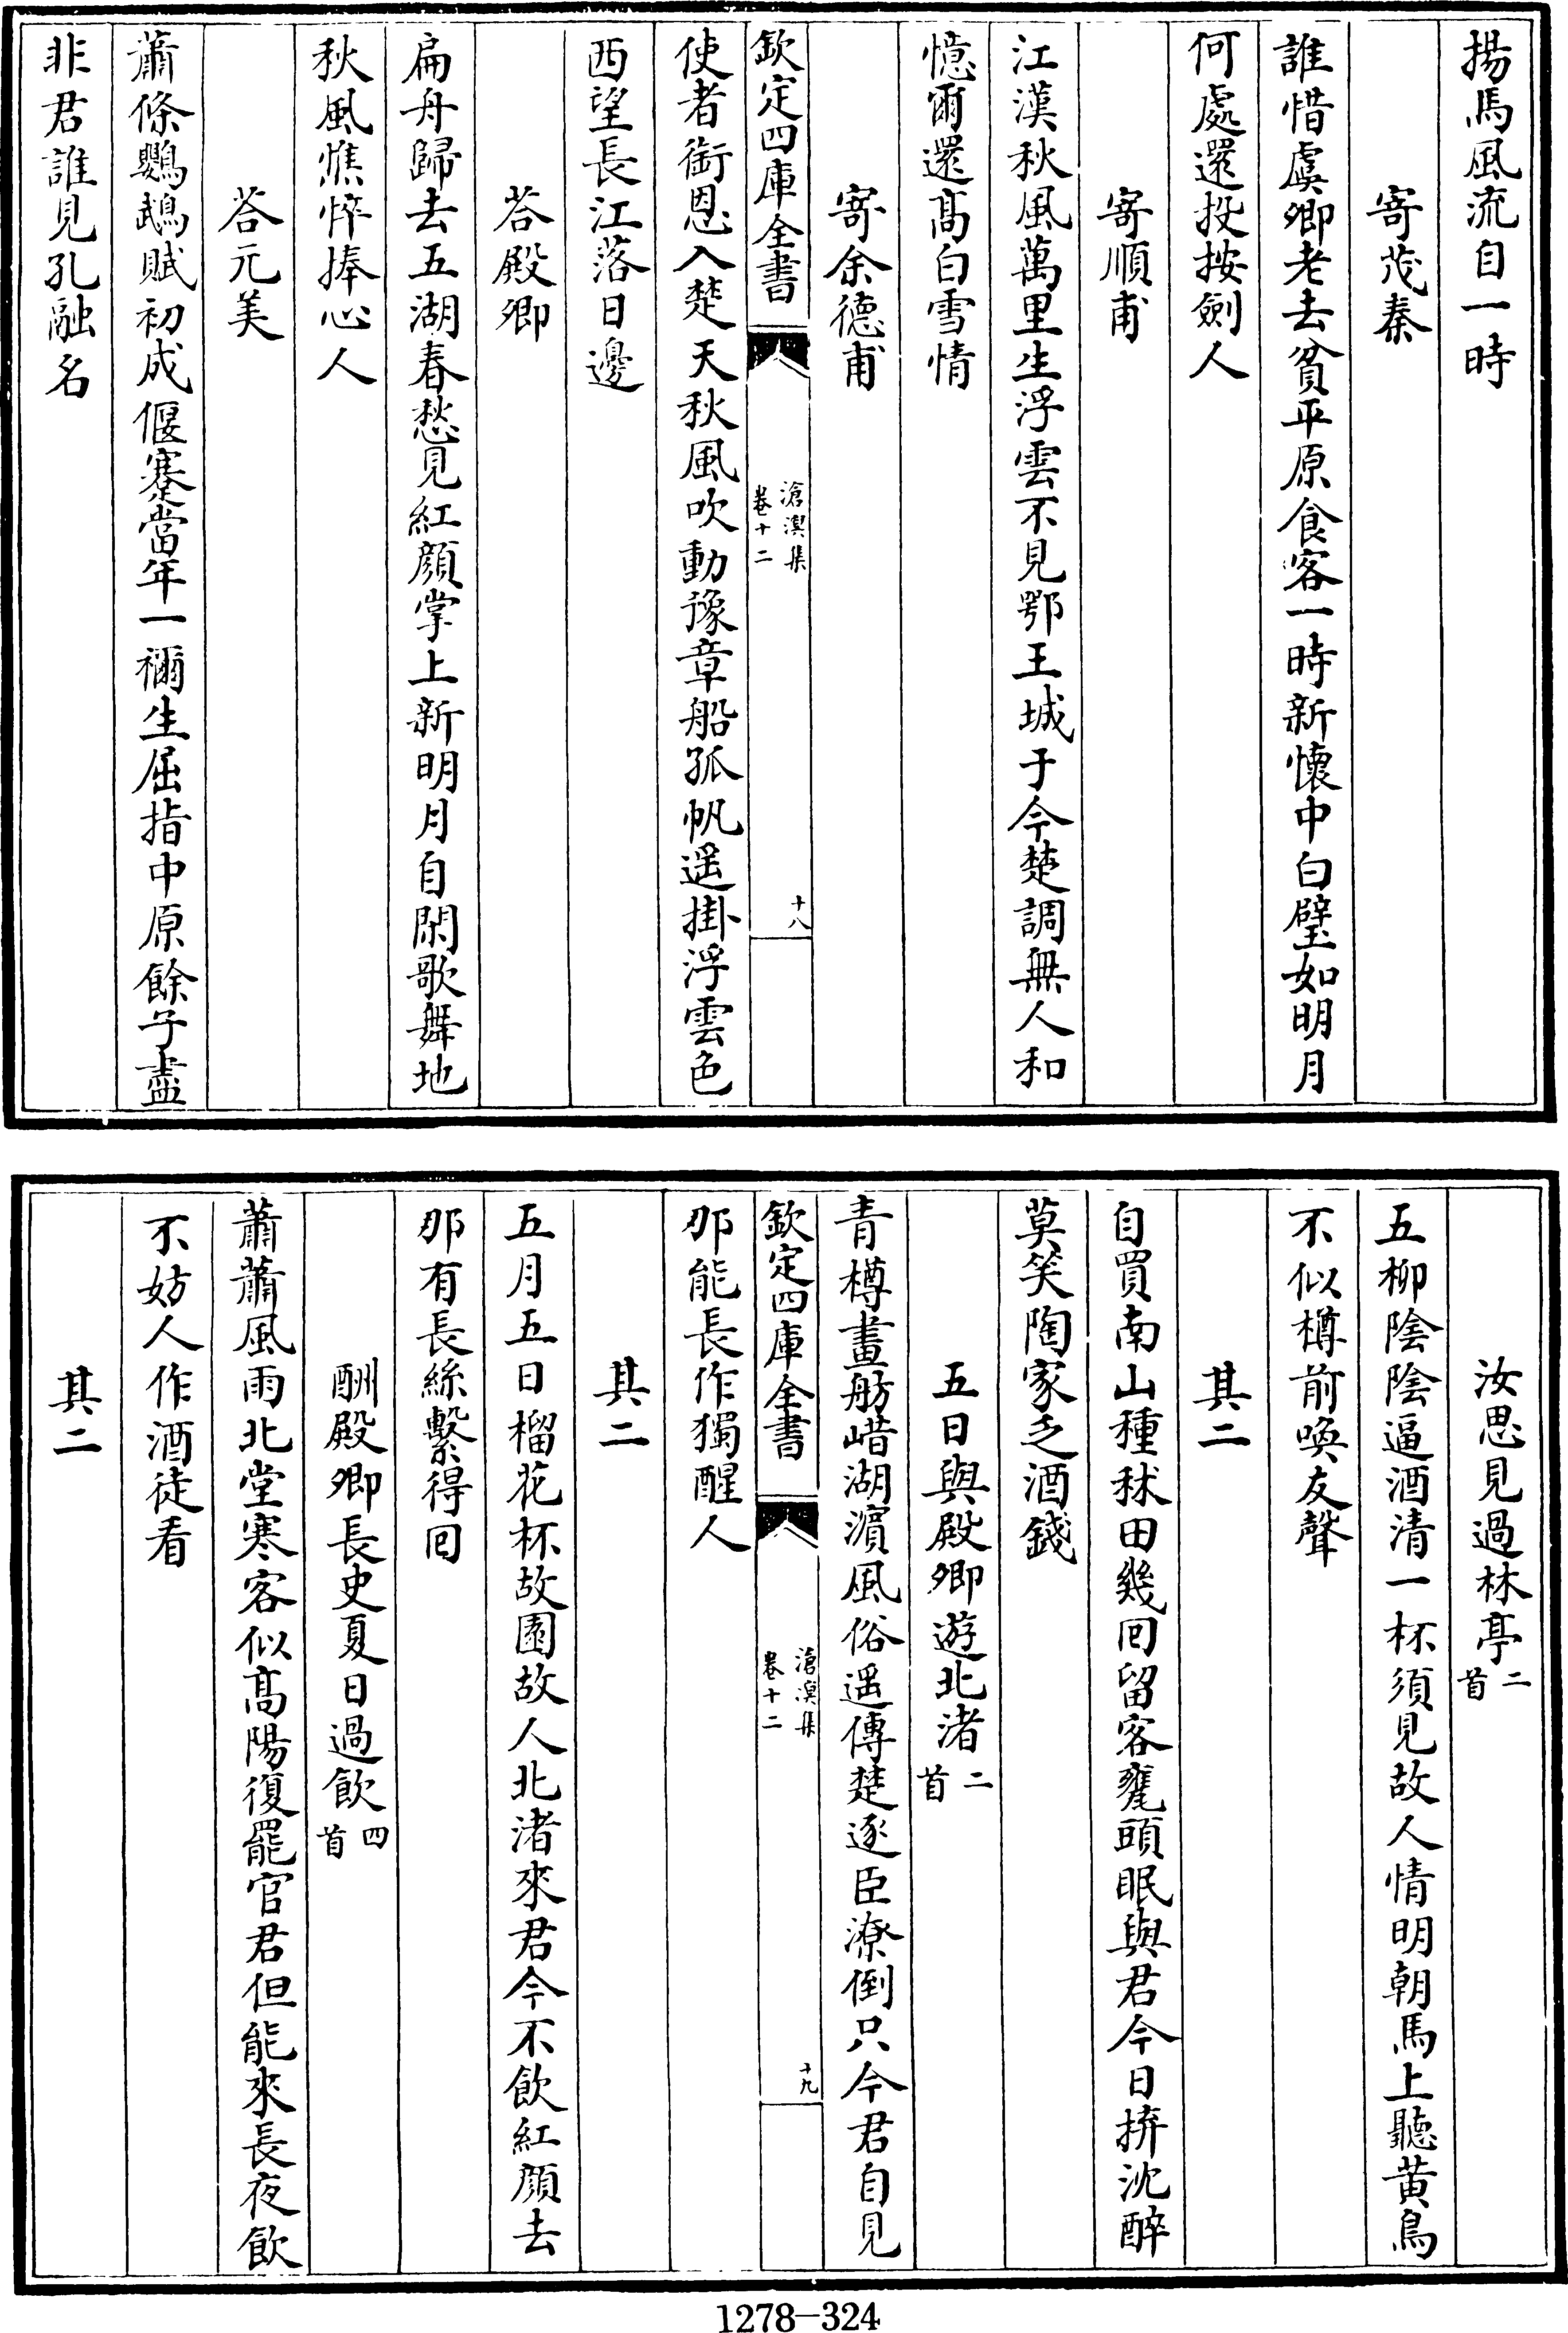 揚馬風流自一時
寄茂秦
誰惜虞卿老去貧平原食客一時新懷中白璧如明月
何處還投按劍人
寄順甫
江漢秋風萬里生浮雲不見鄂王城于今楚調無人和
憶爾還髙白雪情
寄余德甫
欽定四庫全書
滄溟集
卷十二
十八
使者銜恩入楚天秋風吹動豫章船孤帆遥掛浮雲色
西望長江落日邊
荅殿卿
扁舟歸去五湖春愁見紅顔掌上新明月自閑歌舞地
秋風憔悴捧心人
荅元美
蕭條鸚鵡賦初成偃蹇當年一禰生屈指中原餘子盡
非君誰見孔融名
汝思見過林亭二首
五栁陰陰逼酒清一杯須見故人情明朝馬上聽黄鳥
不似樽前喚友聲
其二
自買南山種秫田幾回留客甕頭眠與君今日拚沈醉
莫笑陶家乏酒錢
五日與殿卿遊北渚二首
青樽畫舫㟙湖濵風俗遥傳楚逐臣潦倒只今君自見
那能長作獨醒人
欽定四庫全書
滄溟集
卷十二
十九
其二
五月五日榴花杯故園故人北渚來君今不飲紅顔去
那有長絲繫得回
酬殿卿長史夏日過飲四首
蕭蕭風雨北堂寒客似髙陽復罷官君但能來長夜飲
不妨人作酒徒看
其二
1278-324